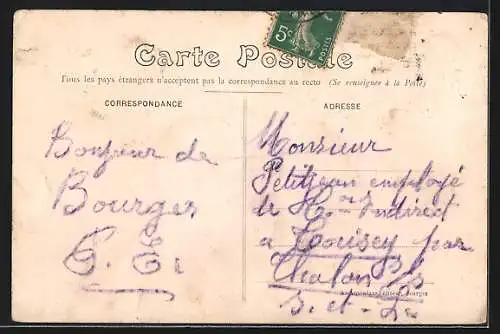 Carte Postale
Tous les pays étrangers n'acceptent pas la correspondance au recto (Se renseigner à la Poste)
CORRESPONDANCE
ADRESSE
5c
POSTES
Bonjour de
Bourges
Monsieur
Petitjean employé
de
Indirect
a par
Chalon s/s
S.-et-L.